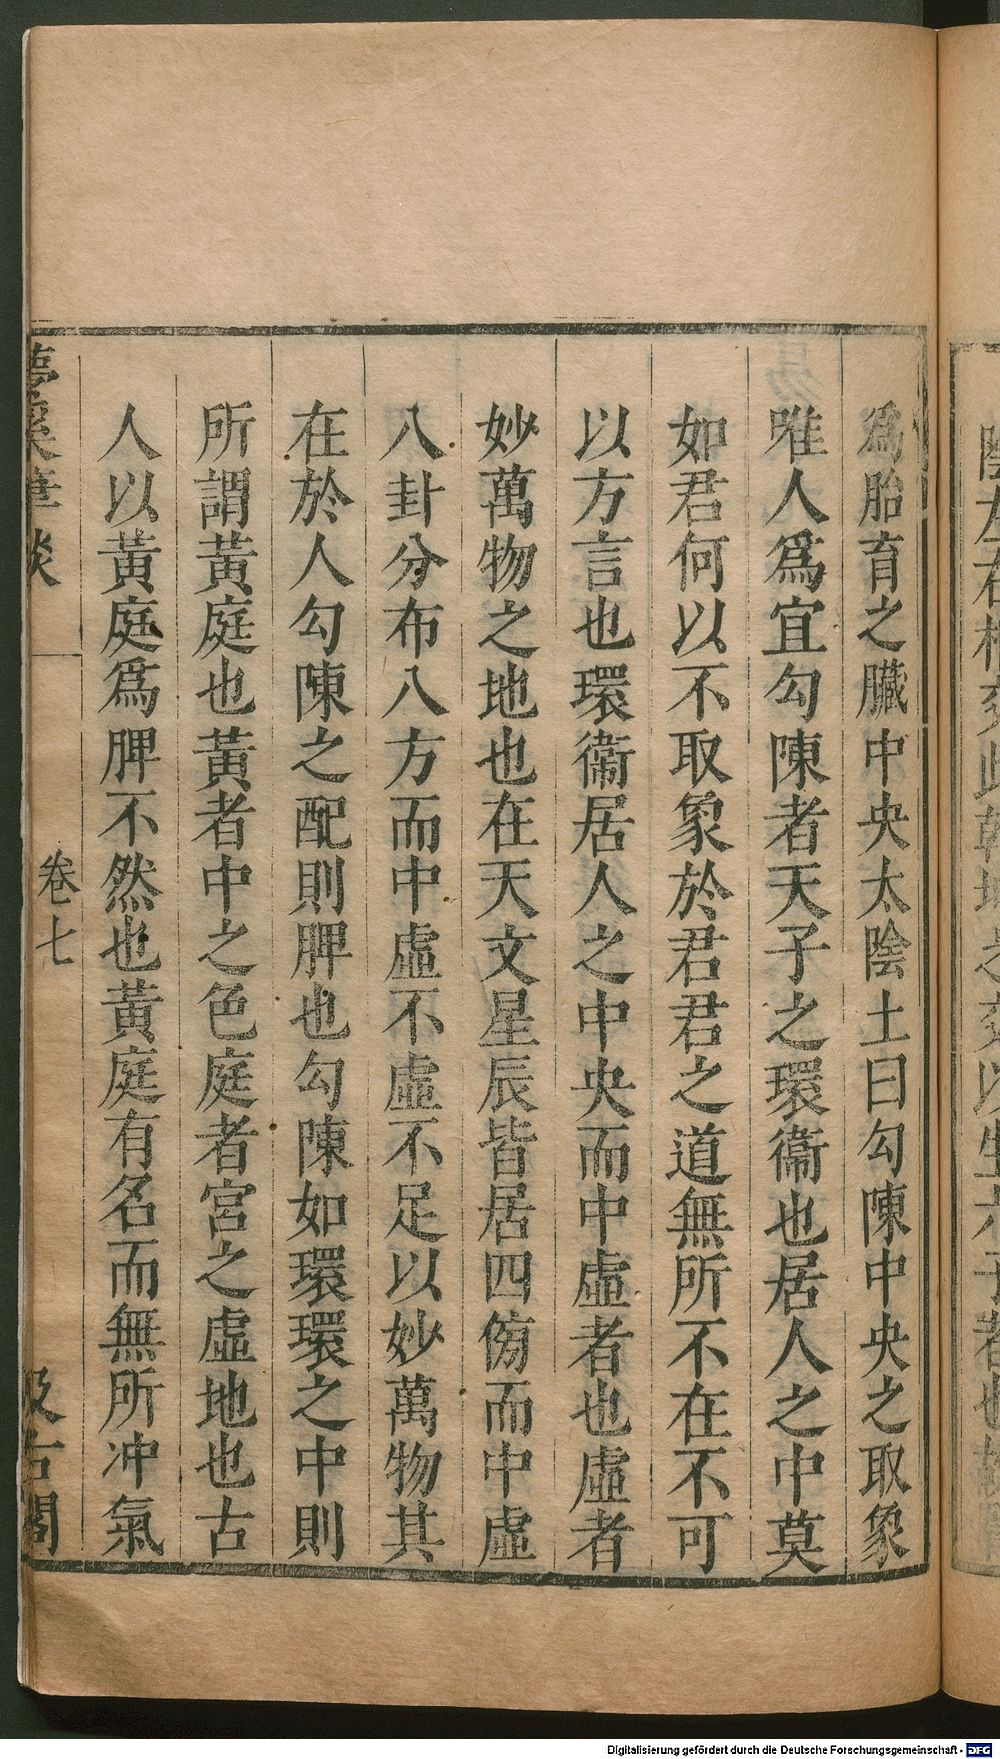 爲胎育之臟中央太陰土曰勾陳中央之取象
唯人爲宜勾陳者天子之環衞也居人之中莫
如君何以不取象於君君之道無所不在不可
以方言也環衞居人之中央而中虛者也虛者
妙萬物之地也在天文星辰皆居四傍而中虛
八卦分布八方而中虛不虛不足以妙萬物其
在於人勾陳之配則脾也勾陳如環環之中則
所謂黃庭也黃者中之色庭者宮之虛地也古
人以黃庭爲脾不然也黃庭有名而無所冲氣
夢溪筆談
卷七
汲古閣
Digitalisierung gefördert durch die Deutsche Forschungsgemeinschaft - DFG